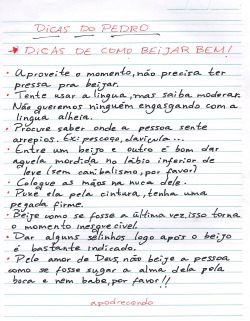 DICAS DO PEDRO
→ DICAS DE COMO BEIJAR BEM!
• Aproveite o momento, não precisa ter
pressa pra beijar.
• Tente usar a língua, mas saiba moderar.
Não queremos ninguém engasgando com a
língua alheia.
• Procure saber onde a pessoa sente
arrepios. Ex: pescoço, clavícula...
• Entre um beijo e outro é bom dar
aquela mordida no lábio inferior de
leve (sem canibalismo, por favor)
• Coloque as mãos na nuca dele.
• Puxe ela pela cintura, tenha uma
pegada firme.
• Beije como se fosse a última vez, isso torna
o momento inesquecível.
• Dar alguns selinhos logo após o beijo
é bastante indicado.
• Pelo amor de Deus, não beije a pessoa
como se fosse sugar a alma dela pela
boca e nem babe, por favor!!
apodrecendo